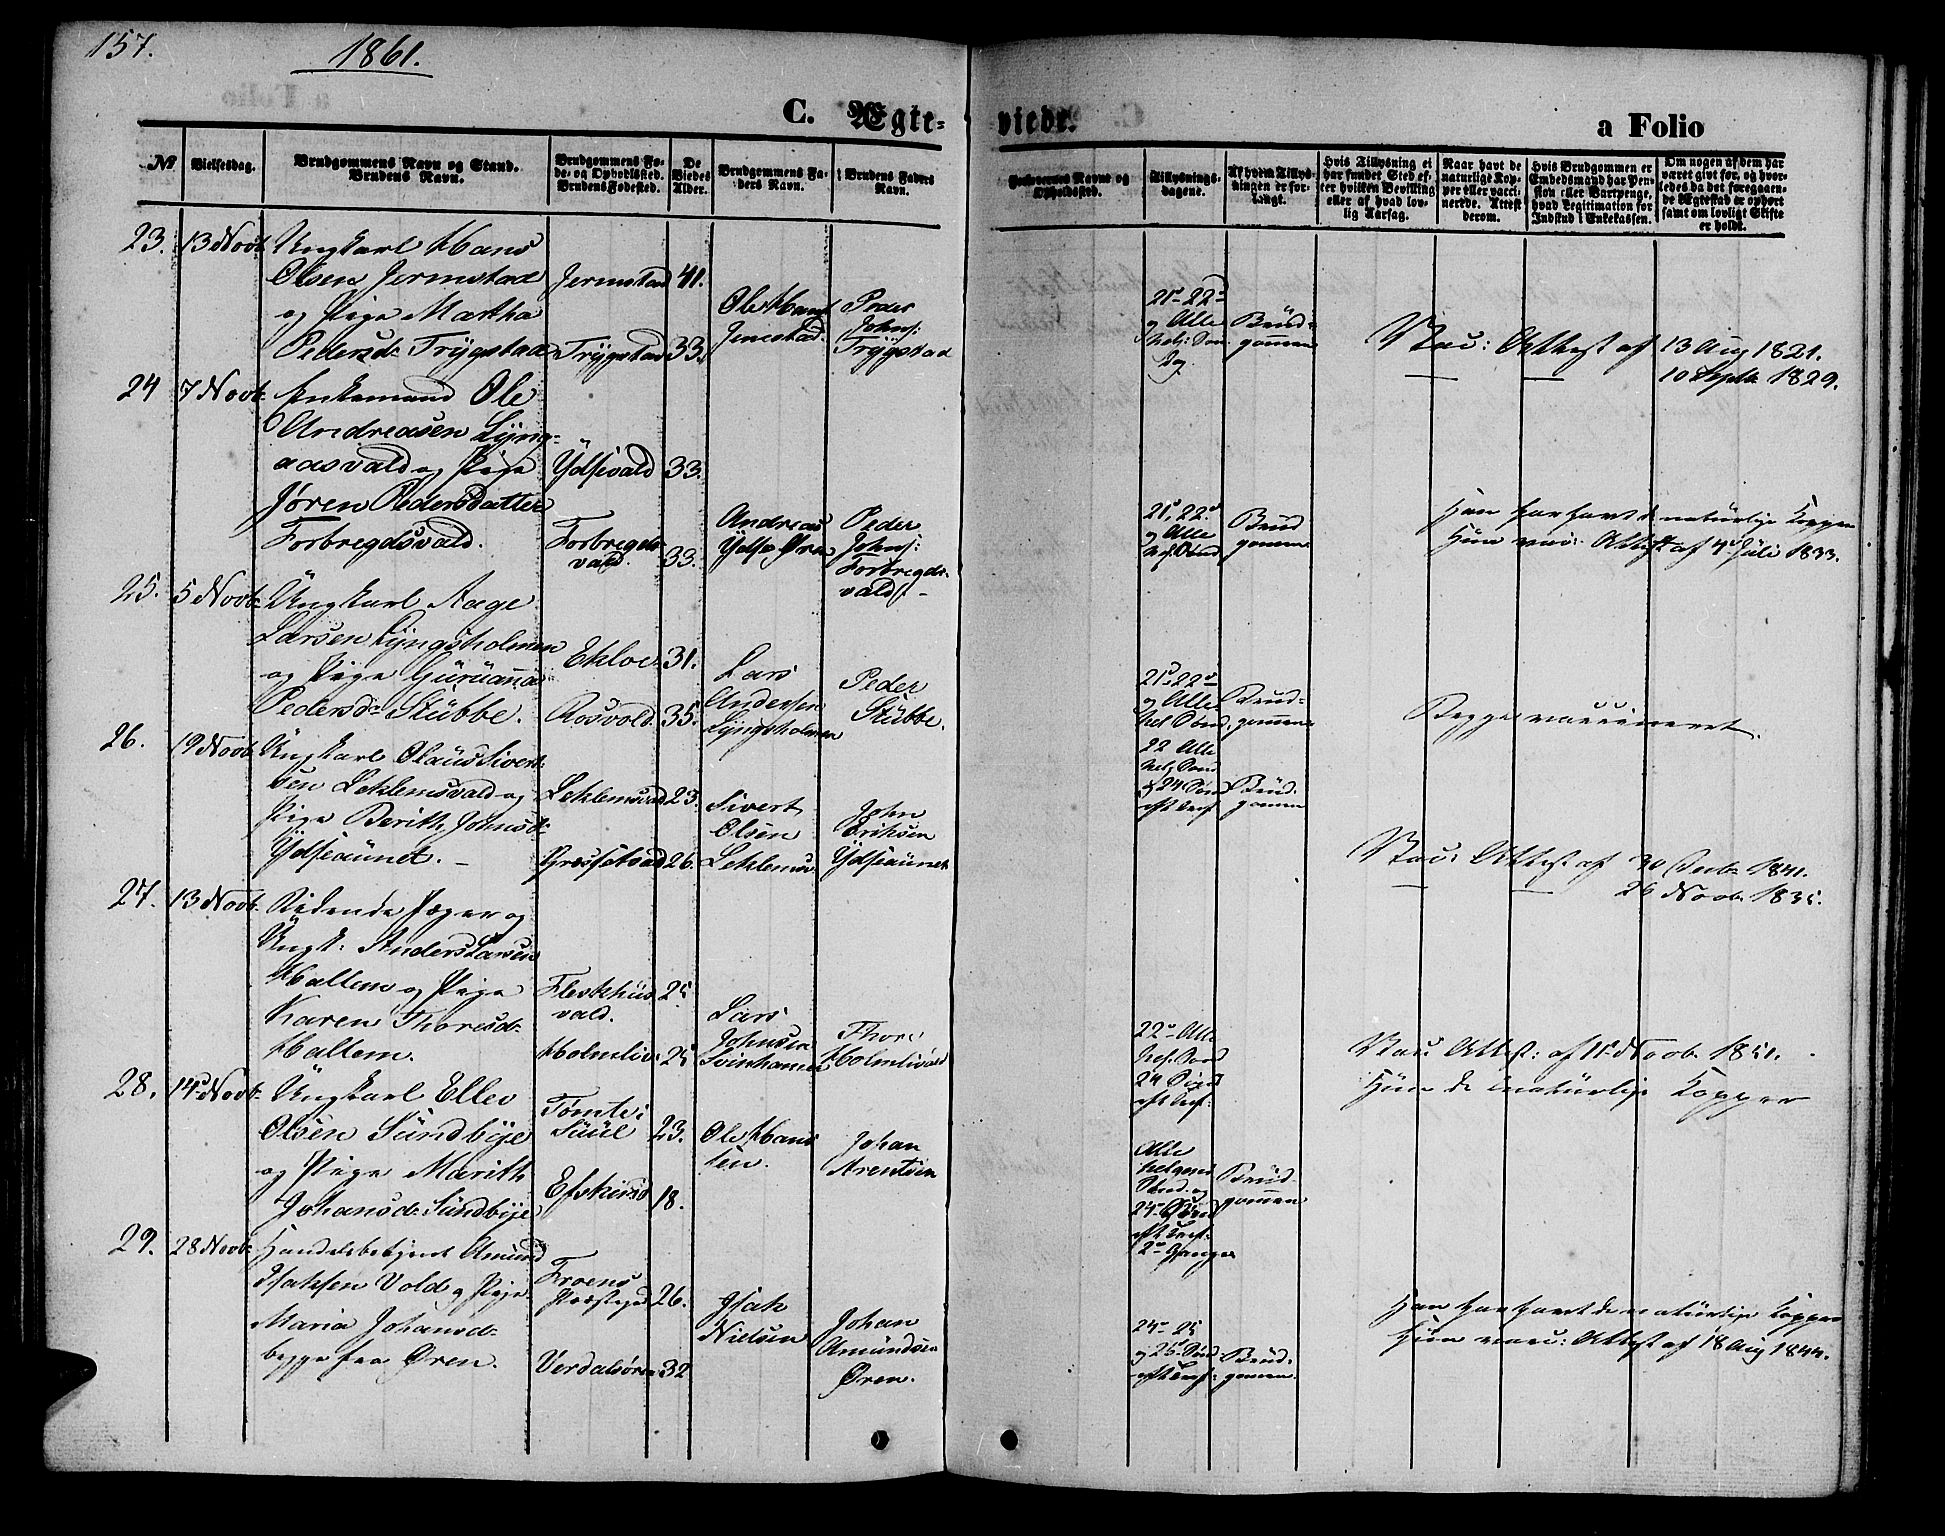 157.
1861.
C. Ægte-
viede.
a Folio
No
Vielsesdag.
Brudgommens Navn og Stand.
Brudens Navn.
Brudgommens Fø-
de- og Opholdssted.
Brudens Fødested.
De
Viedes
Alder.
Brudgommens Fa-
ders Navn.
Brudens Faders
Navn.
Forlovernes Navne og
Opholdssted.
Tillysnings-
dagene.
Af hvem Tillys-
ningen er for-
langt.
Hvis Tillysning ei
har fundet Sted ef-
ter hvilken Bevilling
eller af hvad lov-
lig Aarsag.
Naar havt de
naturlige Kop-
per eller vacci-
nerede. Attest
derom.
Hvis Brudgommen er
Embedsmand har Pen-
sion eller Vartpenge,
hvad Legitimation for
Indskud i Enkekassen.
Om nogen af dem har
været givt før, og hvor-
ledes da det foregaaen-
de Ægtestad er ophørt
samt om lovligt Skifte
er holdt.
23. 13 Novb: Ungkarl Hans
Olsen Jermstad
og Pige Martha
Pedersd: Trÿgstad
Jermstad 41.
Trÿgstad 33.
Ole Hans
Jermstad.
Peder
Johns:
Trÿgstad
21d 22d
og Alle
Helg: Søn
dg.
Brüd-
gommen
Vac: Attest af 13 Aug 1821.
10 Septb 1829.
24 7 Novb: Enkemand Ole
Andreasen Lÿng-
aasvald og Pige
Jøren Pedersdatter
Forbregdsvald.
Ÿdsevald 33.
Forbregds
vald. 33.
Andreas
Ÿdse Øren
Peder
Johns:
Forbregds-
vald.
21d, 22d
og Alle
Brüd
gommen
Han har havt de natürlige Kopper
Hün vac: Attest af 4d Jüli 1833.
25. 5 Novb: Ungkarl Aage
Larsen Lÿngsholmen
og Pige Gürüanna
Pedersd: Stübbe.
Ekloe 31.
Rosvold. 35.
Lars
Andersen
Lÿngsholmen
Peder
Stübbe.
21d 22d
og Alle
Brüd-
gommen
Begge vaccineret.
26. 19 Novb: Ungkarl Olaüs Sivert-
sen Leklemsvald og
Pige Berith Johnsd:
Ÿdseaünet.
Leklemsvad 23.
26.
Sivert
Olsen
Leklemsv
John
Eriksen
Ÿdseaünet
22 Alle
Brüd-
gommen
Vac: Attest af 30 1841.
26 Novb. 1835.
27. 13 Novb. Ridende Jæger og
Ungk: Anders Larsen
Hallem og Pige
Karen Thoresd:
Hallem.
Fleskhüs
vald. 25
Holmlie 25
Lars
Johnsen
Svinhammer
Thore
Holmlivald
22d Alle
Vac: Attest: af 15 Novb 1851.
Hün de natürlige Kopper
28. 14d Novb: Ungkarl Ellev
Olsen Sündbÿe
og Pige Marith
Johansd: Sündbÿe
Tømte i
Süül 23.
18.
Ole Hans
sen.
Johan
Arentsen
Alle
Helgens
Brüd-
gommen
29. 28 Novb: Handelsbetjent Amünd
Isaksen Vold og Pige
Maria Johansd:
begge fra Øren.
Froens
Præstegd 26.
Verdalsøren 32
Isak
Nielsen
Johan
Amündsen
Øren.
24d 25
og 26d Sønd
Brüd-
gommen.
Han har havt de natürlige Kopper
Hün vac: Attest af 18 Aug 1844.